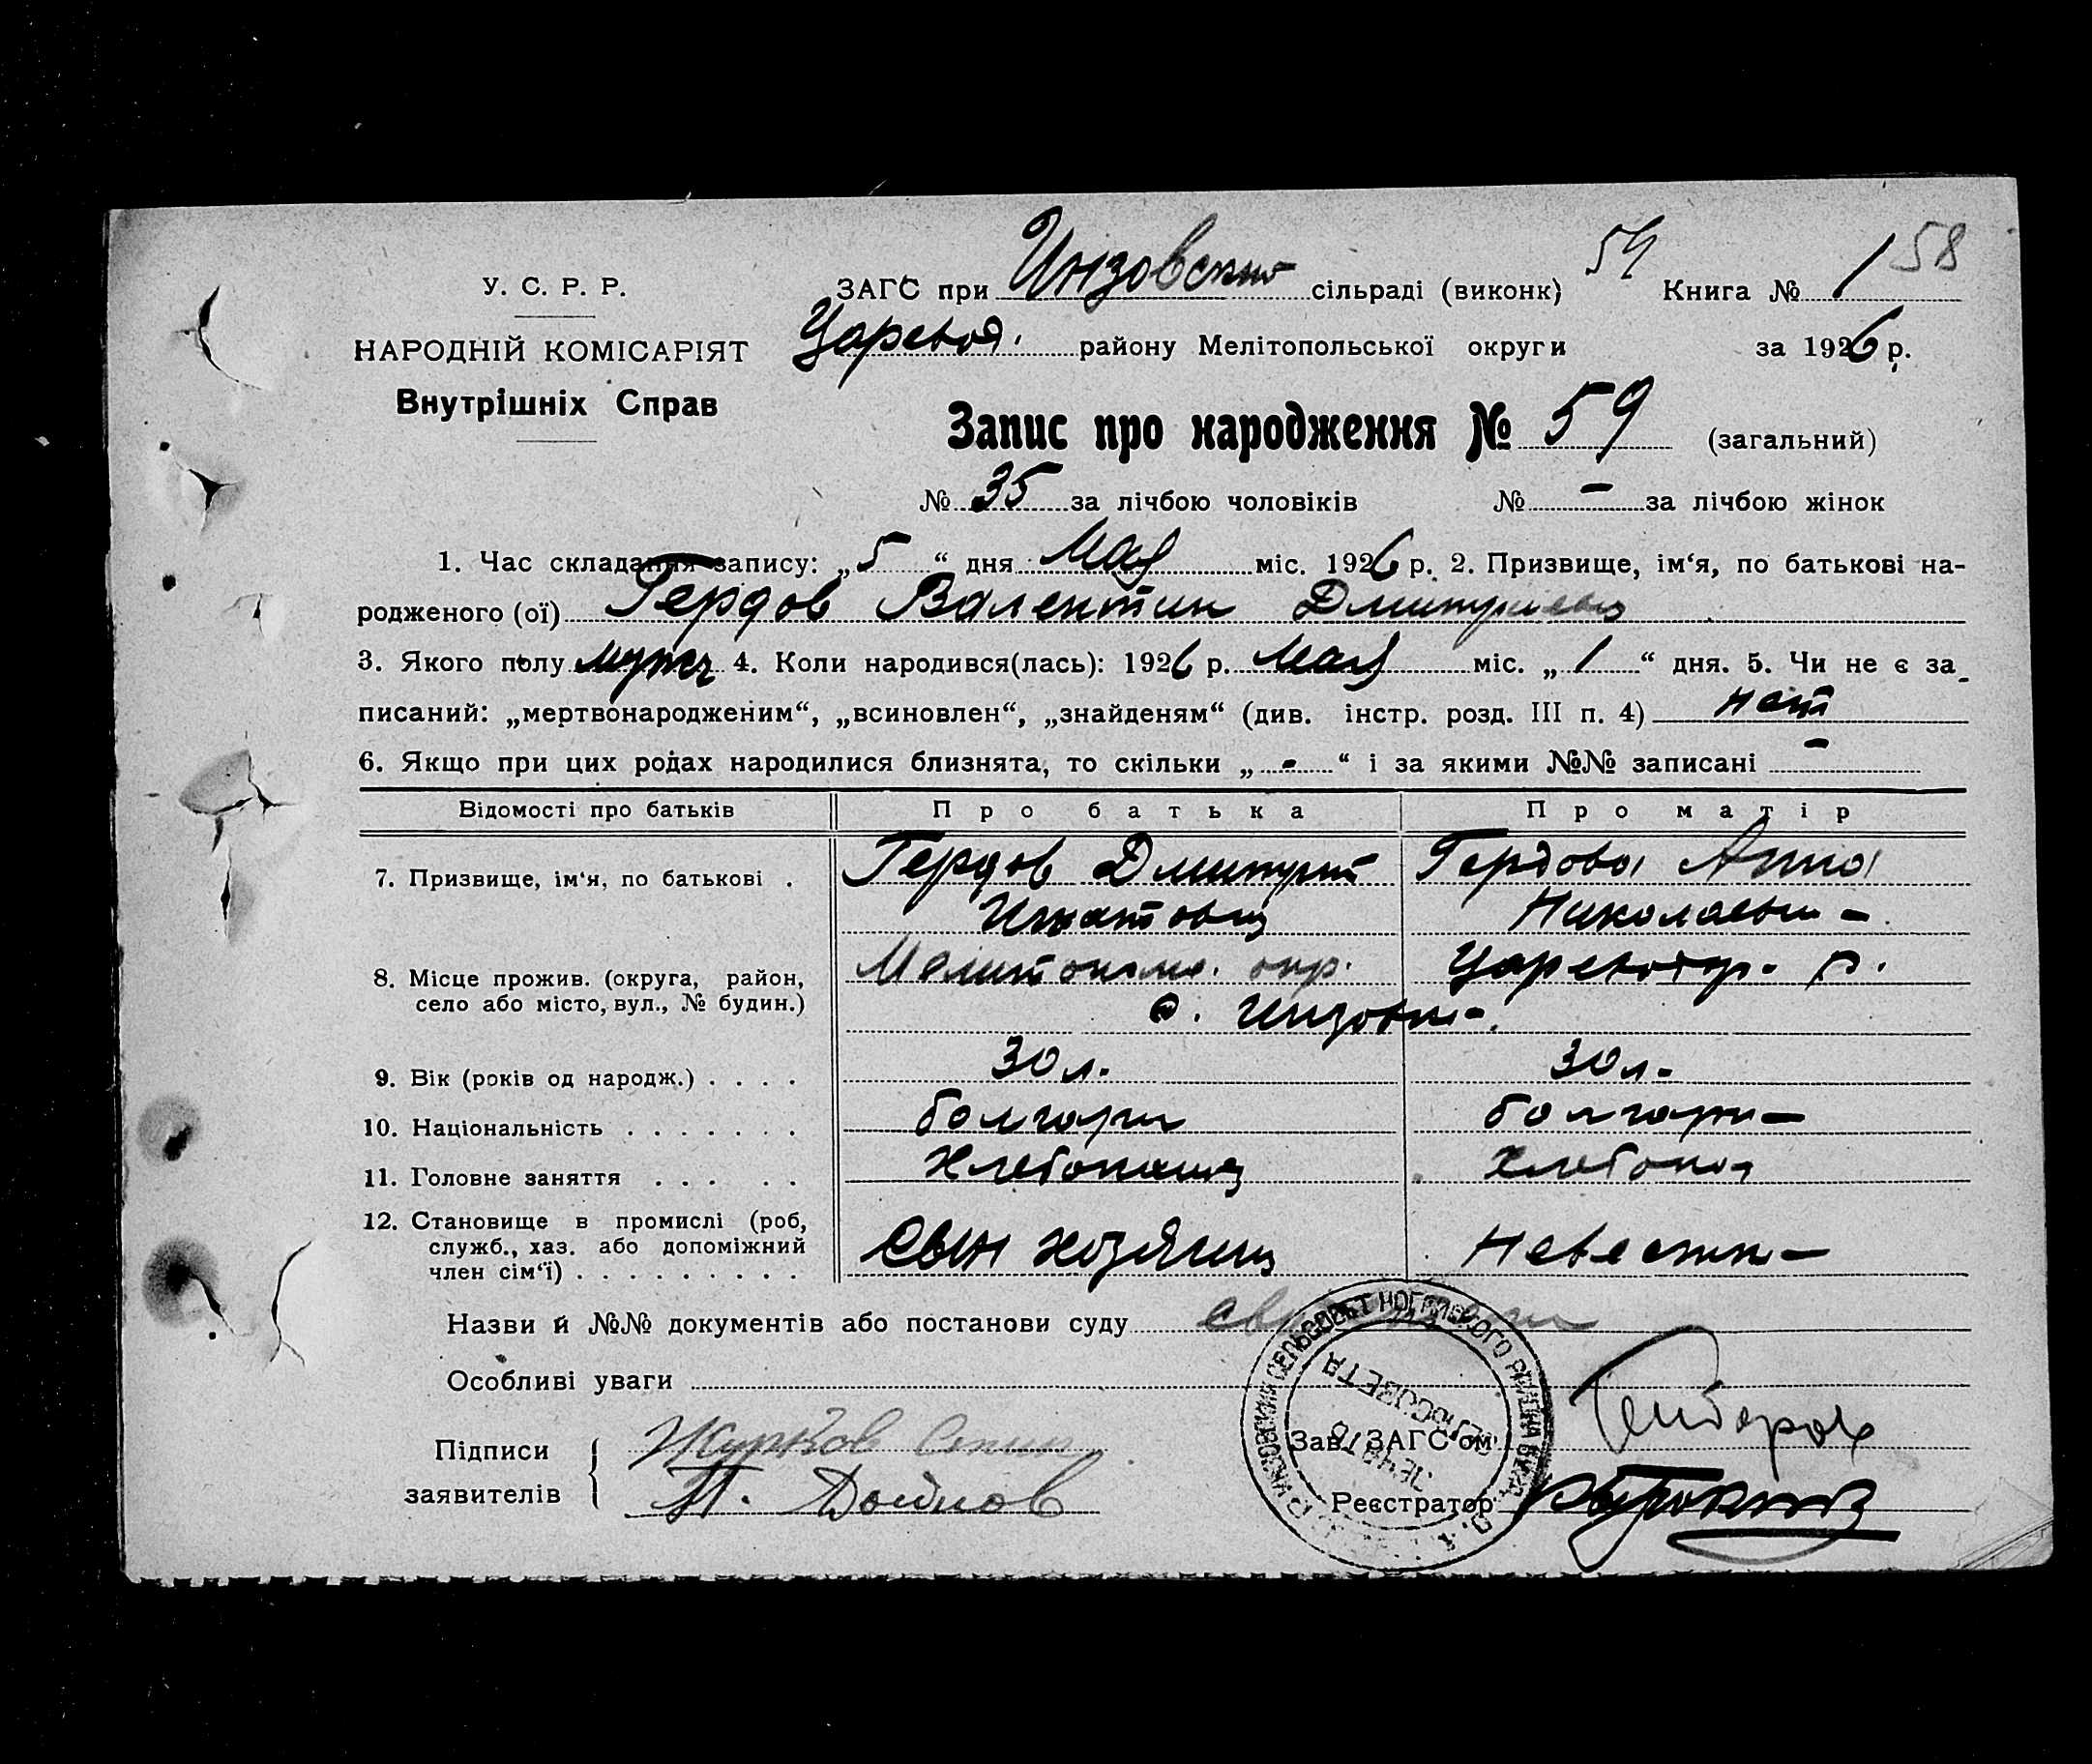 54 58
У. С. Р. Р.
ЗАГС при Инзовский сільраді (виконк) Книга № 1
НАРОДНІЙ КОМІСАРІЯТ
Царевод. району Мелітопольської округи за 1926 р.
Внутрішніх Справ
Запис про народження № 59 (загальний)
№ 35 за лічбою чоловіків № - за лічбою жінок
1. Час складання запису: „5“ дня Мая міс. 1926 р. 2. Призвище, ім‘я, по батькові на-
родженого (ої) Гердов Валентин Дмитриевич
3. Якого полу мужч 4. Коли народився(лась): 1926 р. Мая міс. „1“ дня. 5. Чи не є за_
писаний: „мертвонародженим“, „всиновлен“, „знайденям“ (див. інстр. розд. III п. 4) нет
6. Якщо при цих родах народилися близнята, то скільки „-“ і за якими №№ записані -
Відомості про батьків Про батька Про матір
7. Призвище, ім‘я, по батькові . Гердов Дмитрий Гердова Анна
Игнатович Николаевн-
8. Місце прожив. (округа, район, Мелитопол. окр. Царевод. р.
село або місто, вул., № будин.) с. Инзовк-
9. Вік (років од народж.) . . . . 30 л. 30 л.
10. Національність . . . . . . . болгарин болгарк-
11. Головне заняття . . . . . Хлебопашец Хлебопа
12. Становище в промислі (роб, сын хозяина Невестк-
служб., хаз. або допоміжний
член сім‘ї) . . . . . . . . .
Назви й №№ документів або постанови суду
Особливі уваги
Підписи Журков
заявителів П. Дойнов
Зав. ЗАГС‘ом
Реєстратор
СЕЛЬСОВЕТ НОГАЙСКОГО РАЙОНА
СЕЛЬСОВЕТА
ПЕЧАТЬ